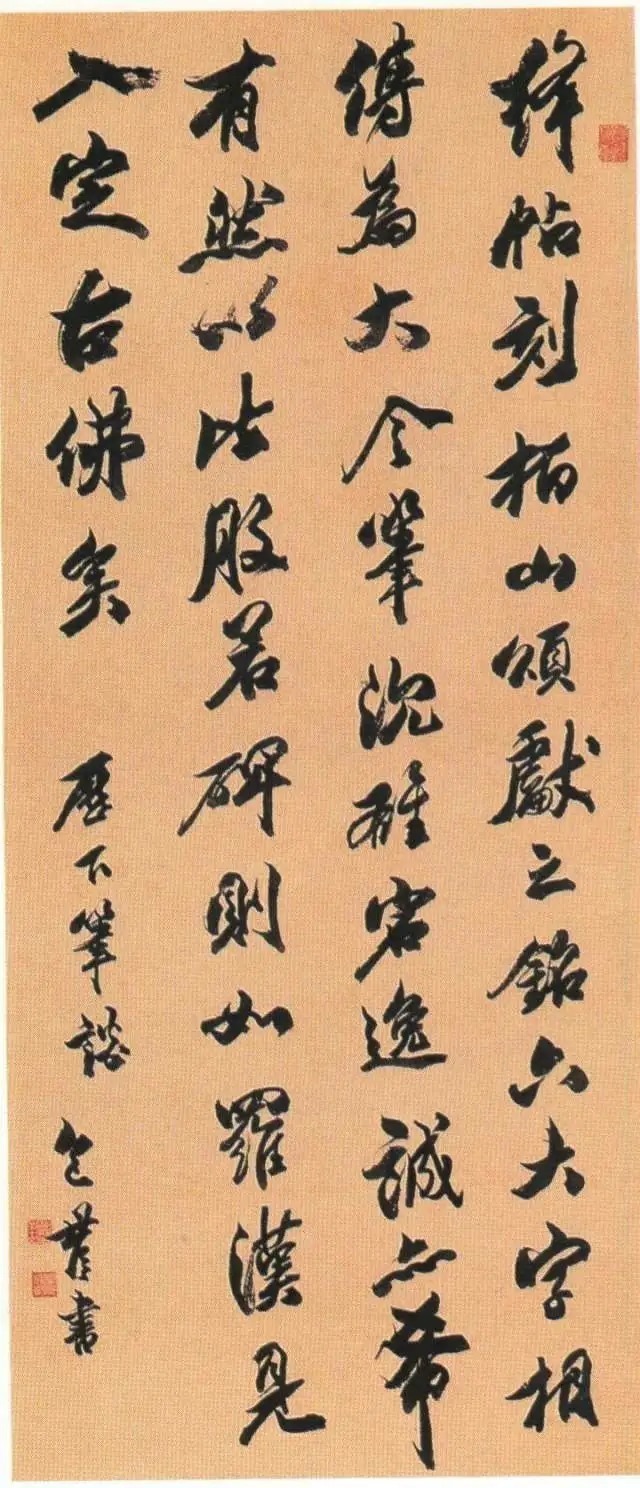 絳帖刻桓山頌獻之銘六大字相
傳為大令筆沉雄宕逸誠亦希
有然以比般若碑則如羅漢見
入定古佛矣 歷下筆談 包世臣書